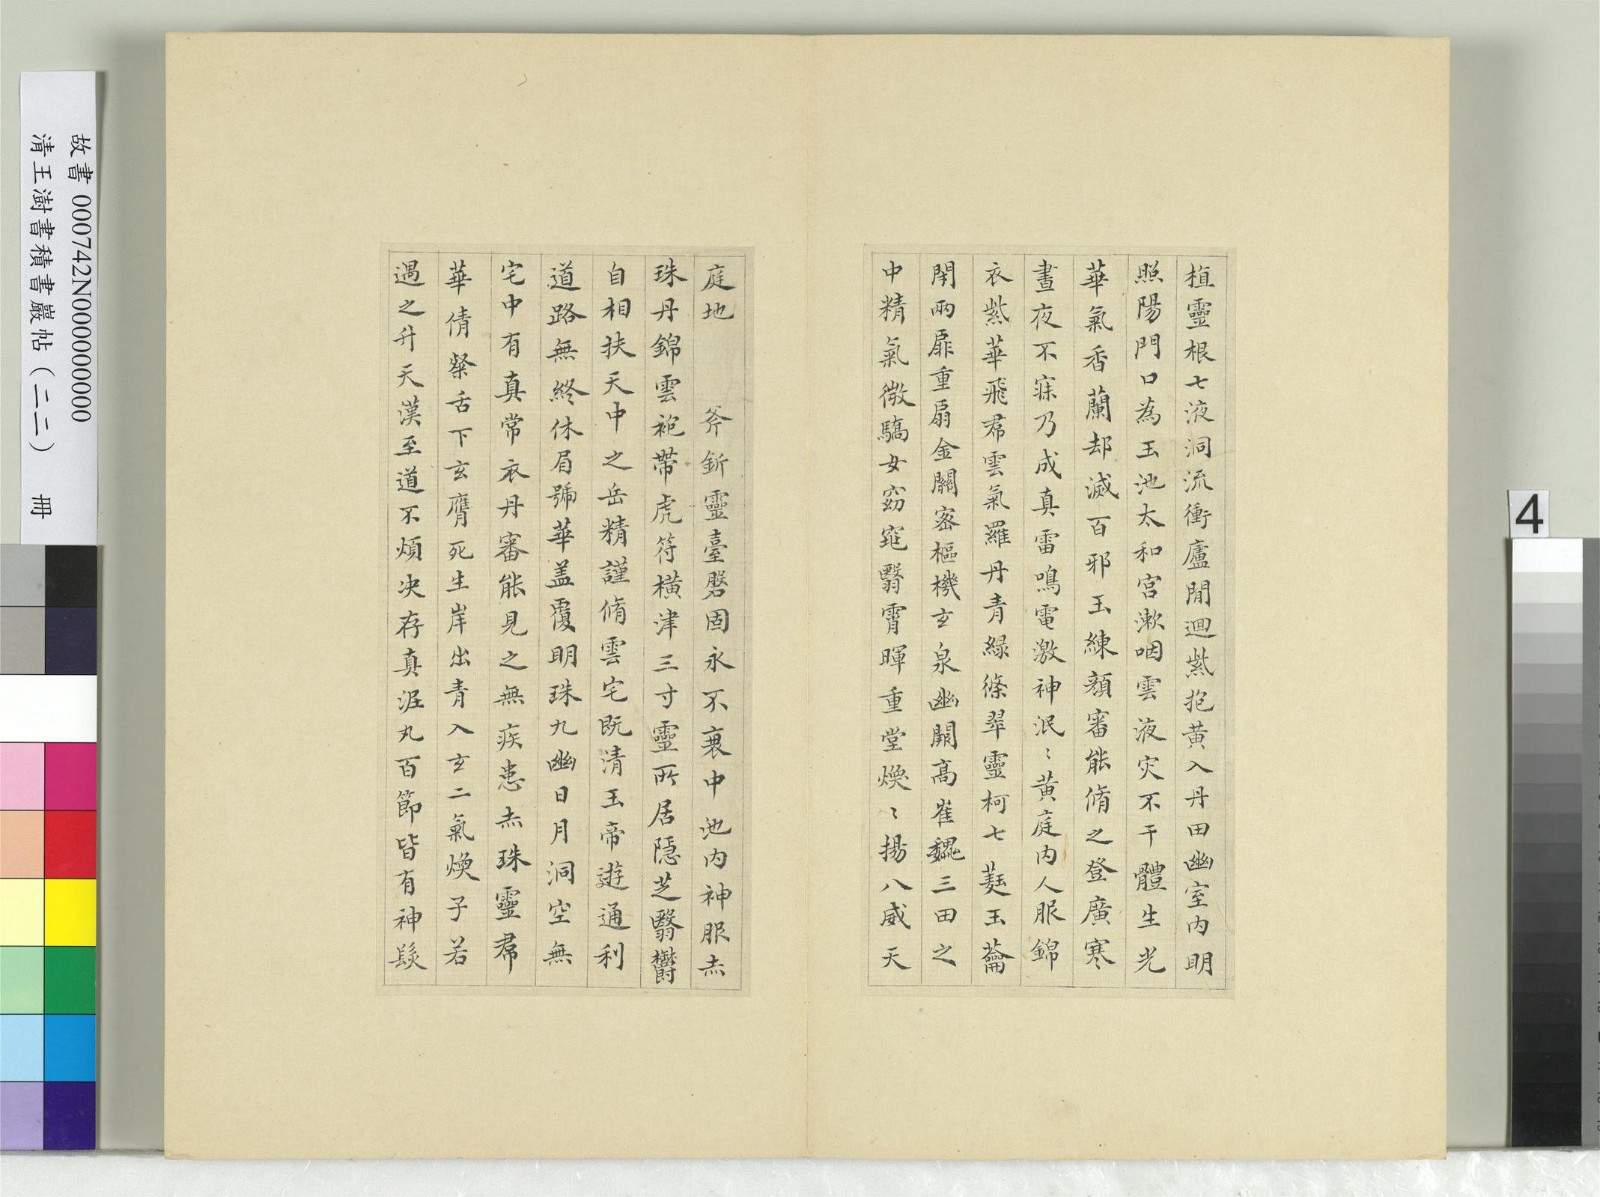 植靈根七液洞流衝廬閒迴紫抱黃入丹田幽室內明
照陽門口為玉池太和宮漱咽雲液灾不干體生光
華氣香蘭却滅百邪玉練顏審能脩之登廣寒
晝夜不寐乃成真雷鳴電激神泯〻黃庭內人服錦
衣紫華飛帬雲氣羅丹青綠條翠靈柯七蕤玉蘥
閉兩扉重扇金關密樞機玄泉幽闕高崔巍三田之
中精氣微驕女窈窕翳霄暉重堂煥〻揚八威天
庭地 斧釿靈臺磐固永不衰中池內神服赤
珠丹錦雲袍帶虎符橫津三寸靈所居隱芝翳鬱
自相扶天中之岳精謹脩雲宅既清玉帝遊通利
道路無終休眉號華盖覆明珠九幽日月洞空無
宅中有真常衣丹審能見之無疾患赤珠靈帬
華倩粲舌下玄膺死生岸出青入玄二氣煥子若
遇之升天漢至道不煩决存真泥丸百節皆有神髮
故書 000742N000000000
清王澍書積書巖帖(二二) 冊
4